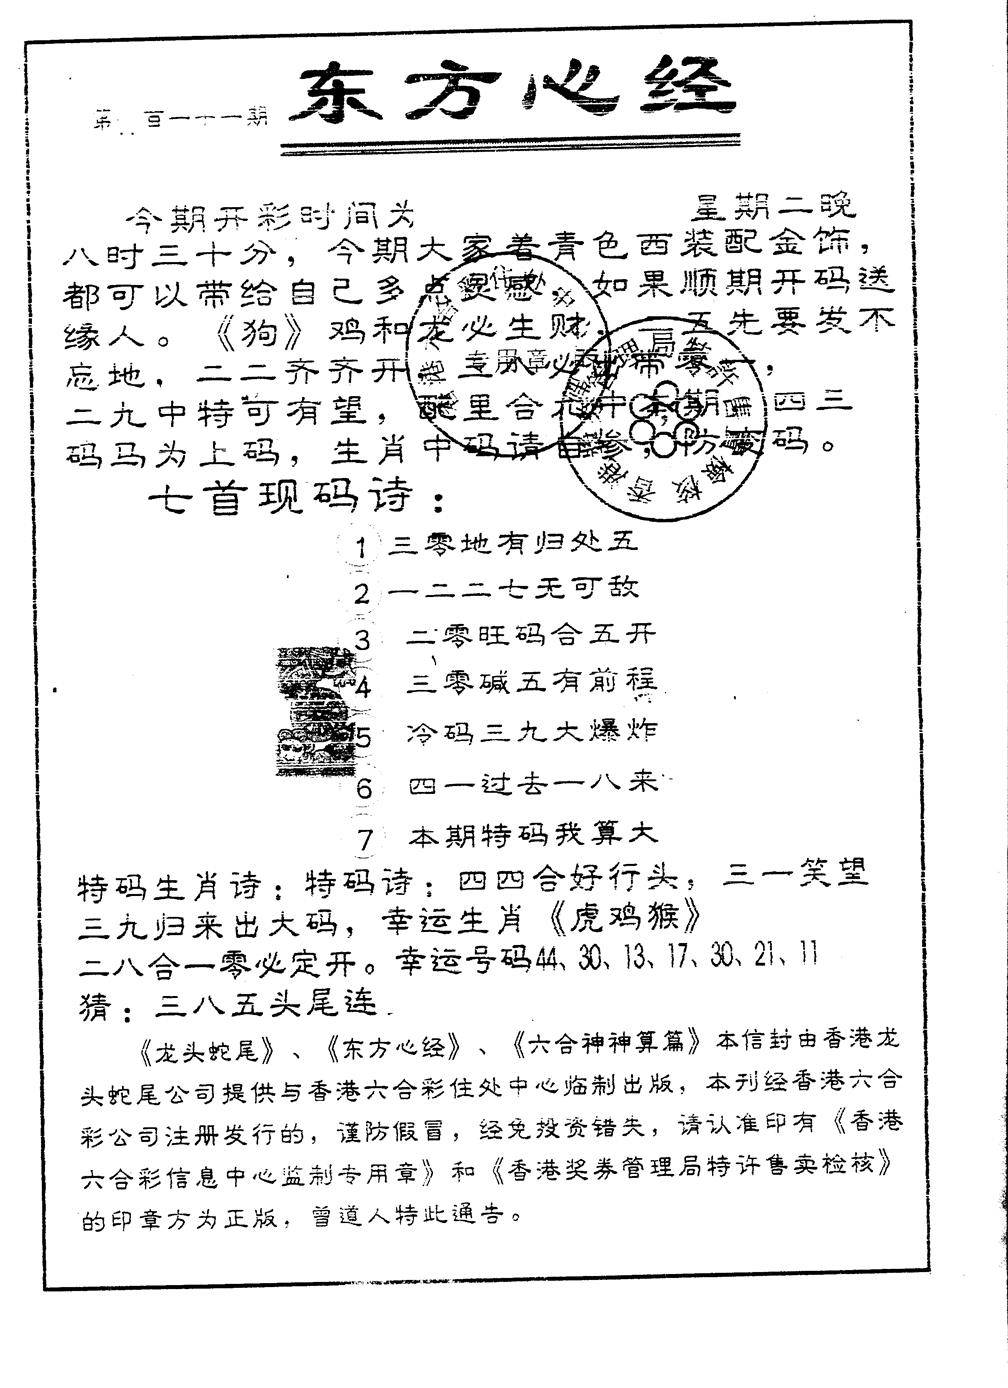 东方心经
第 百一十一期
今期开彩时间为 星期二晚
八时三十分，今期大家着青色西装配金饰，
都可以带给自己多点灵感，如果顺期开码送
缘人。《狗》鸡和龙必生财，一五先要发不
忘地，二二齐齐开，三八必出带零一，
二九中特可有望，配里合 期 四三
码马为上码，生肖中码请自参，防 码。
七首现码诗：
1 三零地有归处五
2 一二二七无可敌
3 二零旺码合五开
4 三零碱五有前程
5 冷码三九大爆炸
6 四一过去一八来
7 本期特码我算大
特码生肖诗：特码诗：四四合好行头，三一笑望
三九归来出大码，幸运生肖《虎鸡猴》
二八合一零必定开。幸运号码44、30、13、17、30、21、11
猜：三八五头尾连
《龙头蛇尾》、《东方心经》、《六合神神算篇》本信封由香港龙
头蛇尾公司提供与香港六合彩住处中心临制出版，本刊经香港六合
彩公司注册发行的，谨防假冒，经免投资错失，请认准印有《香港
六合彩信息中心监制专用章》和《香港奖券管理局特许售卖检核》
的印章方为正版，曾道人特此通告。
专用章